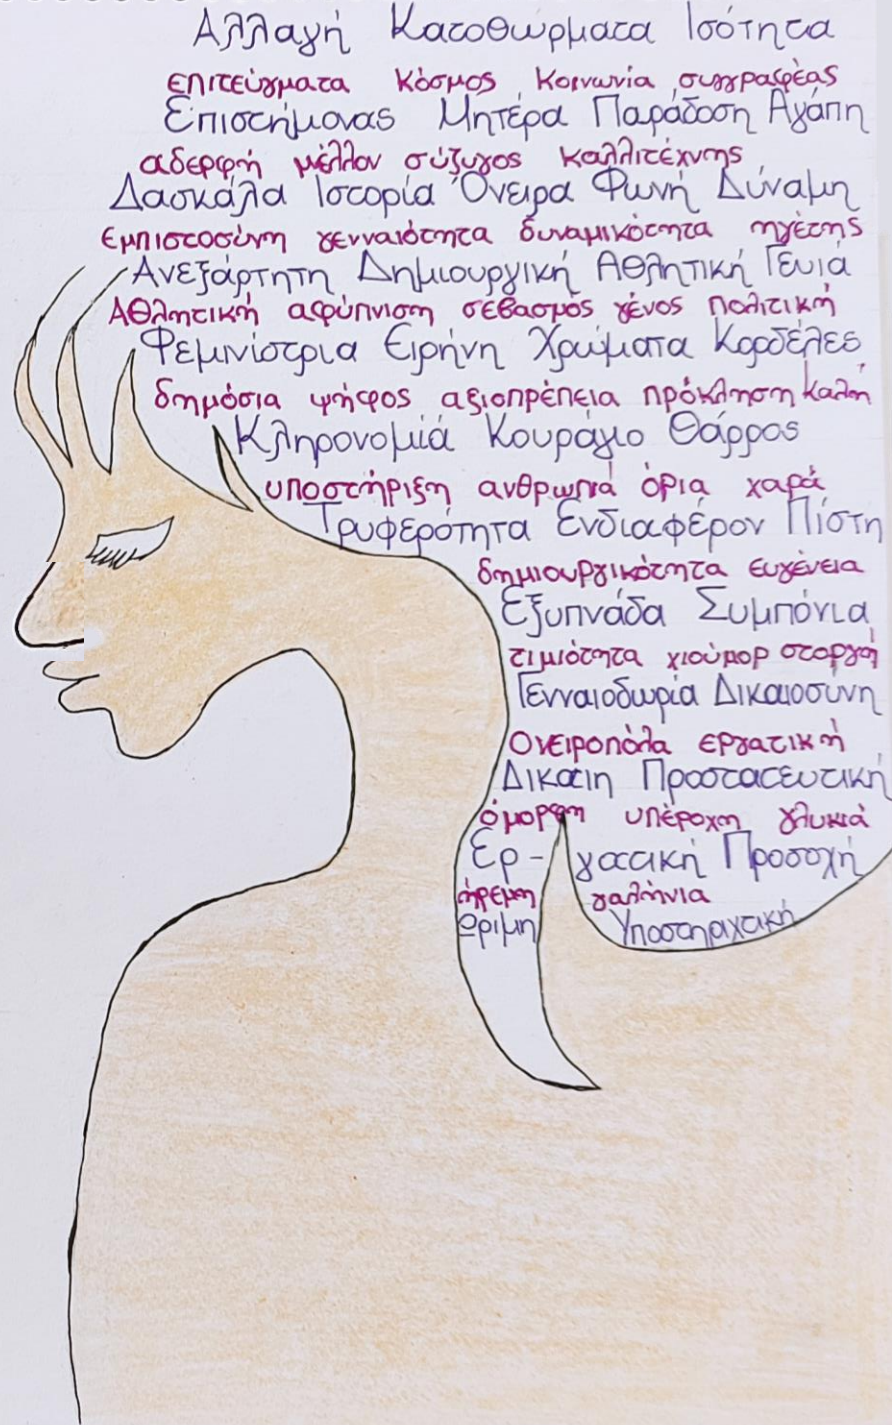 Αλλαγή Κατοθώρματα Ισότητα
επιτεύγματα κόσμος κοινωνία συγγραφέας
Επιστήμονας Μητέρα Παράδοση Αγάπη
αδερφή μέλλον σύζυγος καλλιτέχνης
Δασκάλα Ιστορία Όνειρα Φωνή Δύναμη
εμπιστοσύνη γενναιότητα δυναμικότητα ηγέτης
Ανεξάρτητη Δημιουργική Αθλητική Γενιά
Αθλητική αφύπνιση σεβασμός γένος πολιτική
Φεμινίστρια Ειρήνη Χρώματα Κορδέλες
δημόσια ψήφος αξιοπρέπεια πρόκληση καλή
Κληρονομιά Κουράγιο Θάρρος
υποστήριξη ανθρωπιά όρια χαρά
Τρυφερότητα Ενδιαφέρον Πίστη
δημιουργικότητα ευγένεια
Εξυπνάδα Συμπόνια
τιμιότητα χιούμορ στοργή
Γενναιοδωρία Δικαιοσύνη
Ονειροπόλα εργατική
Δίκαιη Προστατευτική
όμορφη υπέροχη γλυκιά
Ερ- γατική Προσοχή
ήρεμη γαλήνια
Ώριμη Υποστηριχτική